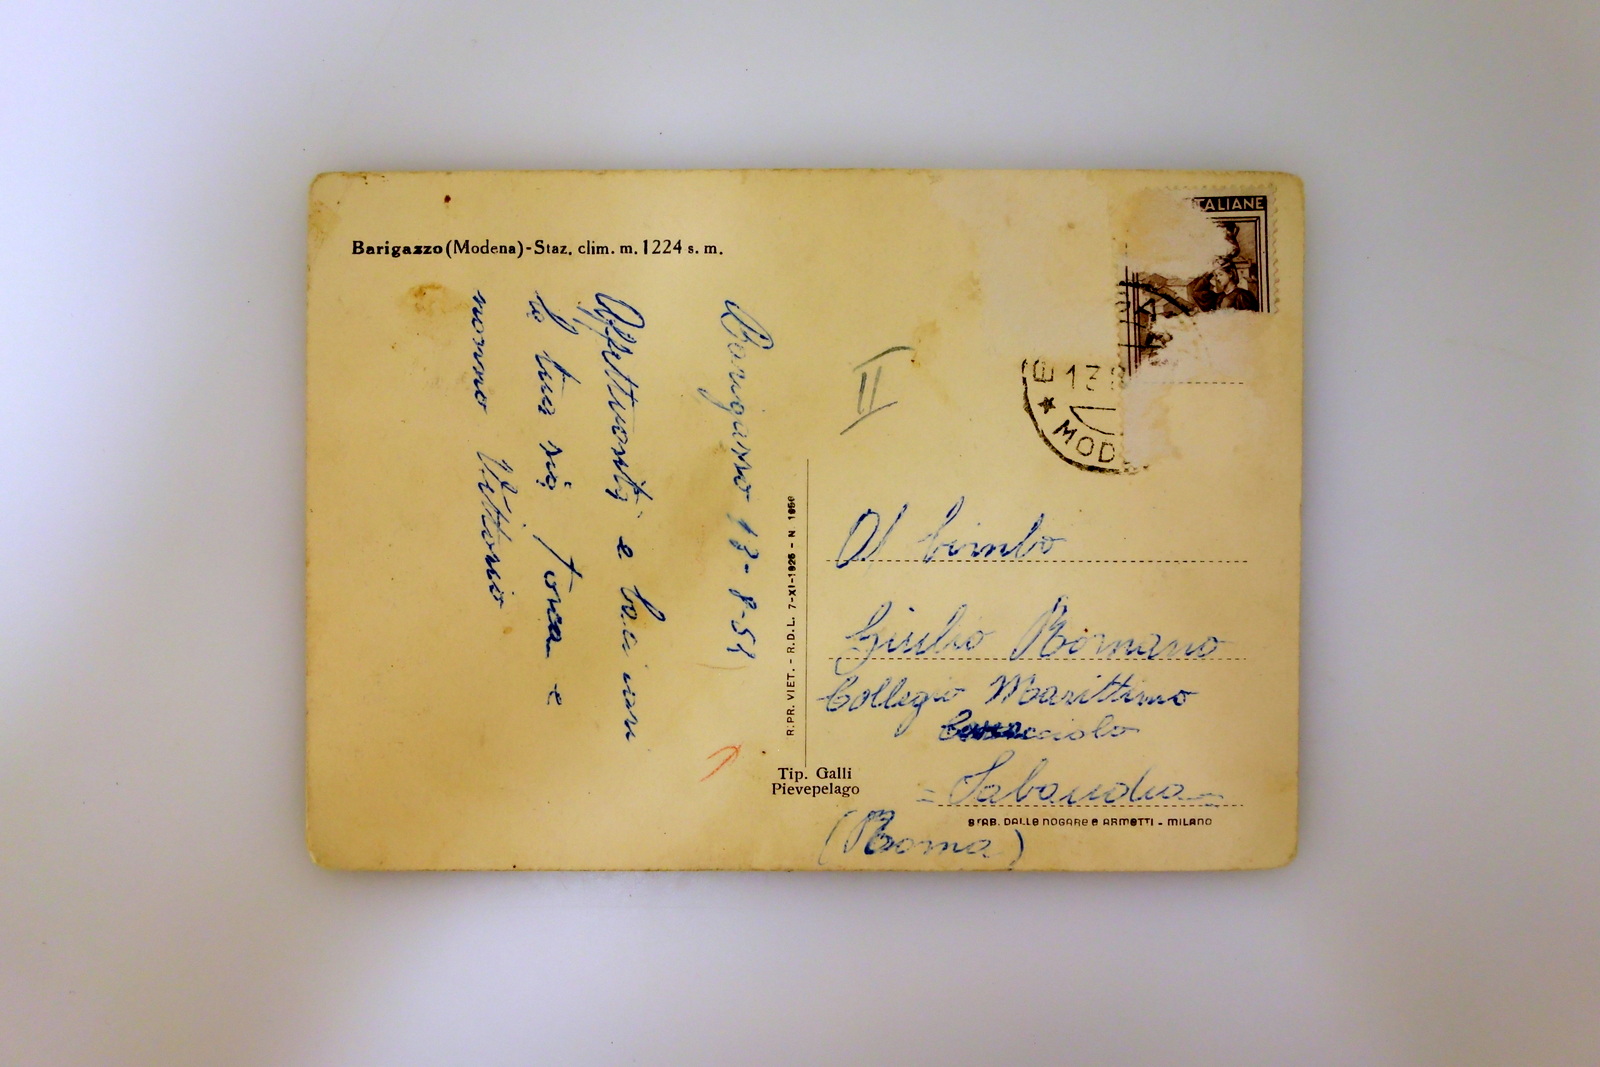 Barigazzo (Modena) - Staz. clim. m. 1224 s. m.
Barigazzo 13-8-51
Affettuosità e baci
la tua zia e
nonno Vittorio
R. PR. VIET. - R.D.L. 7-XI-1926 - N
Tip. Galli
Pievepelago
ITALIANE
13 8
MOD
II
Al bimbo
Giulio Romano
Collegio Marittimo
Caracciolo
= Sabaudia
(Roma)
STAB. DALLE NOGARE e ARMETTI - MILANO